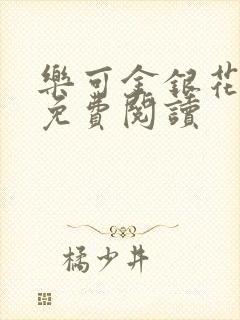 樂可金銀花
免費閱讀
橘少井